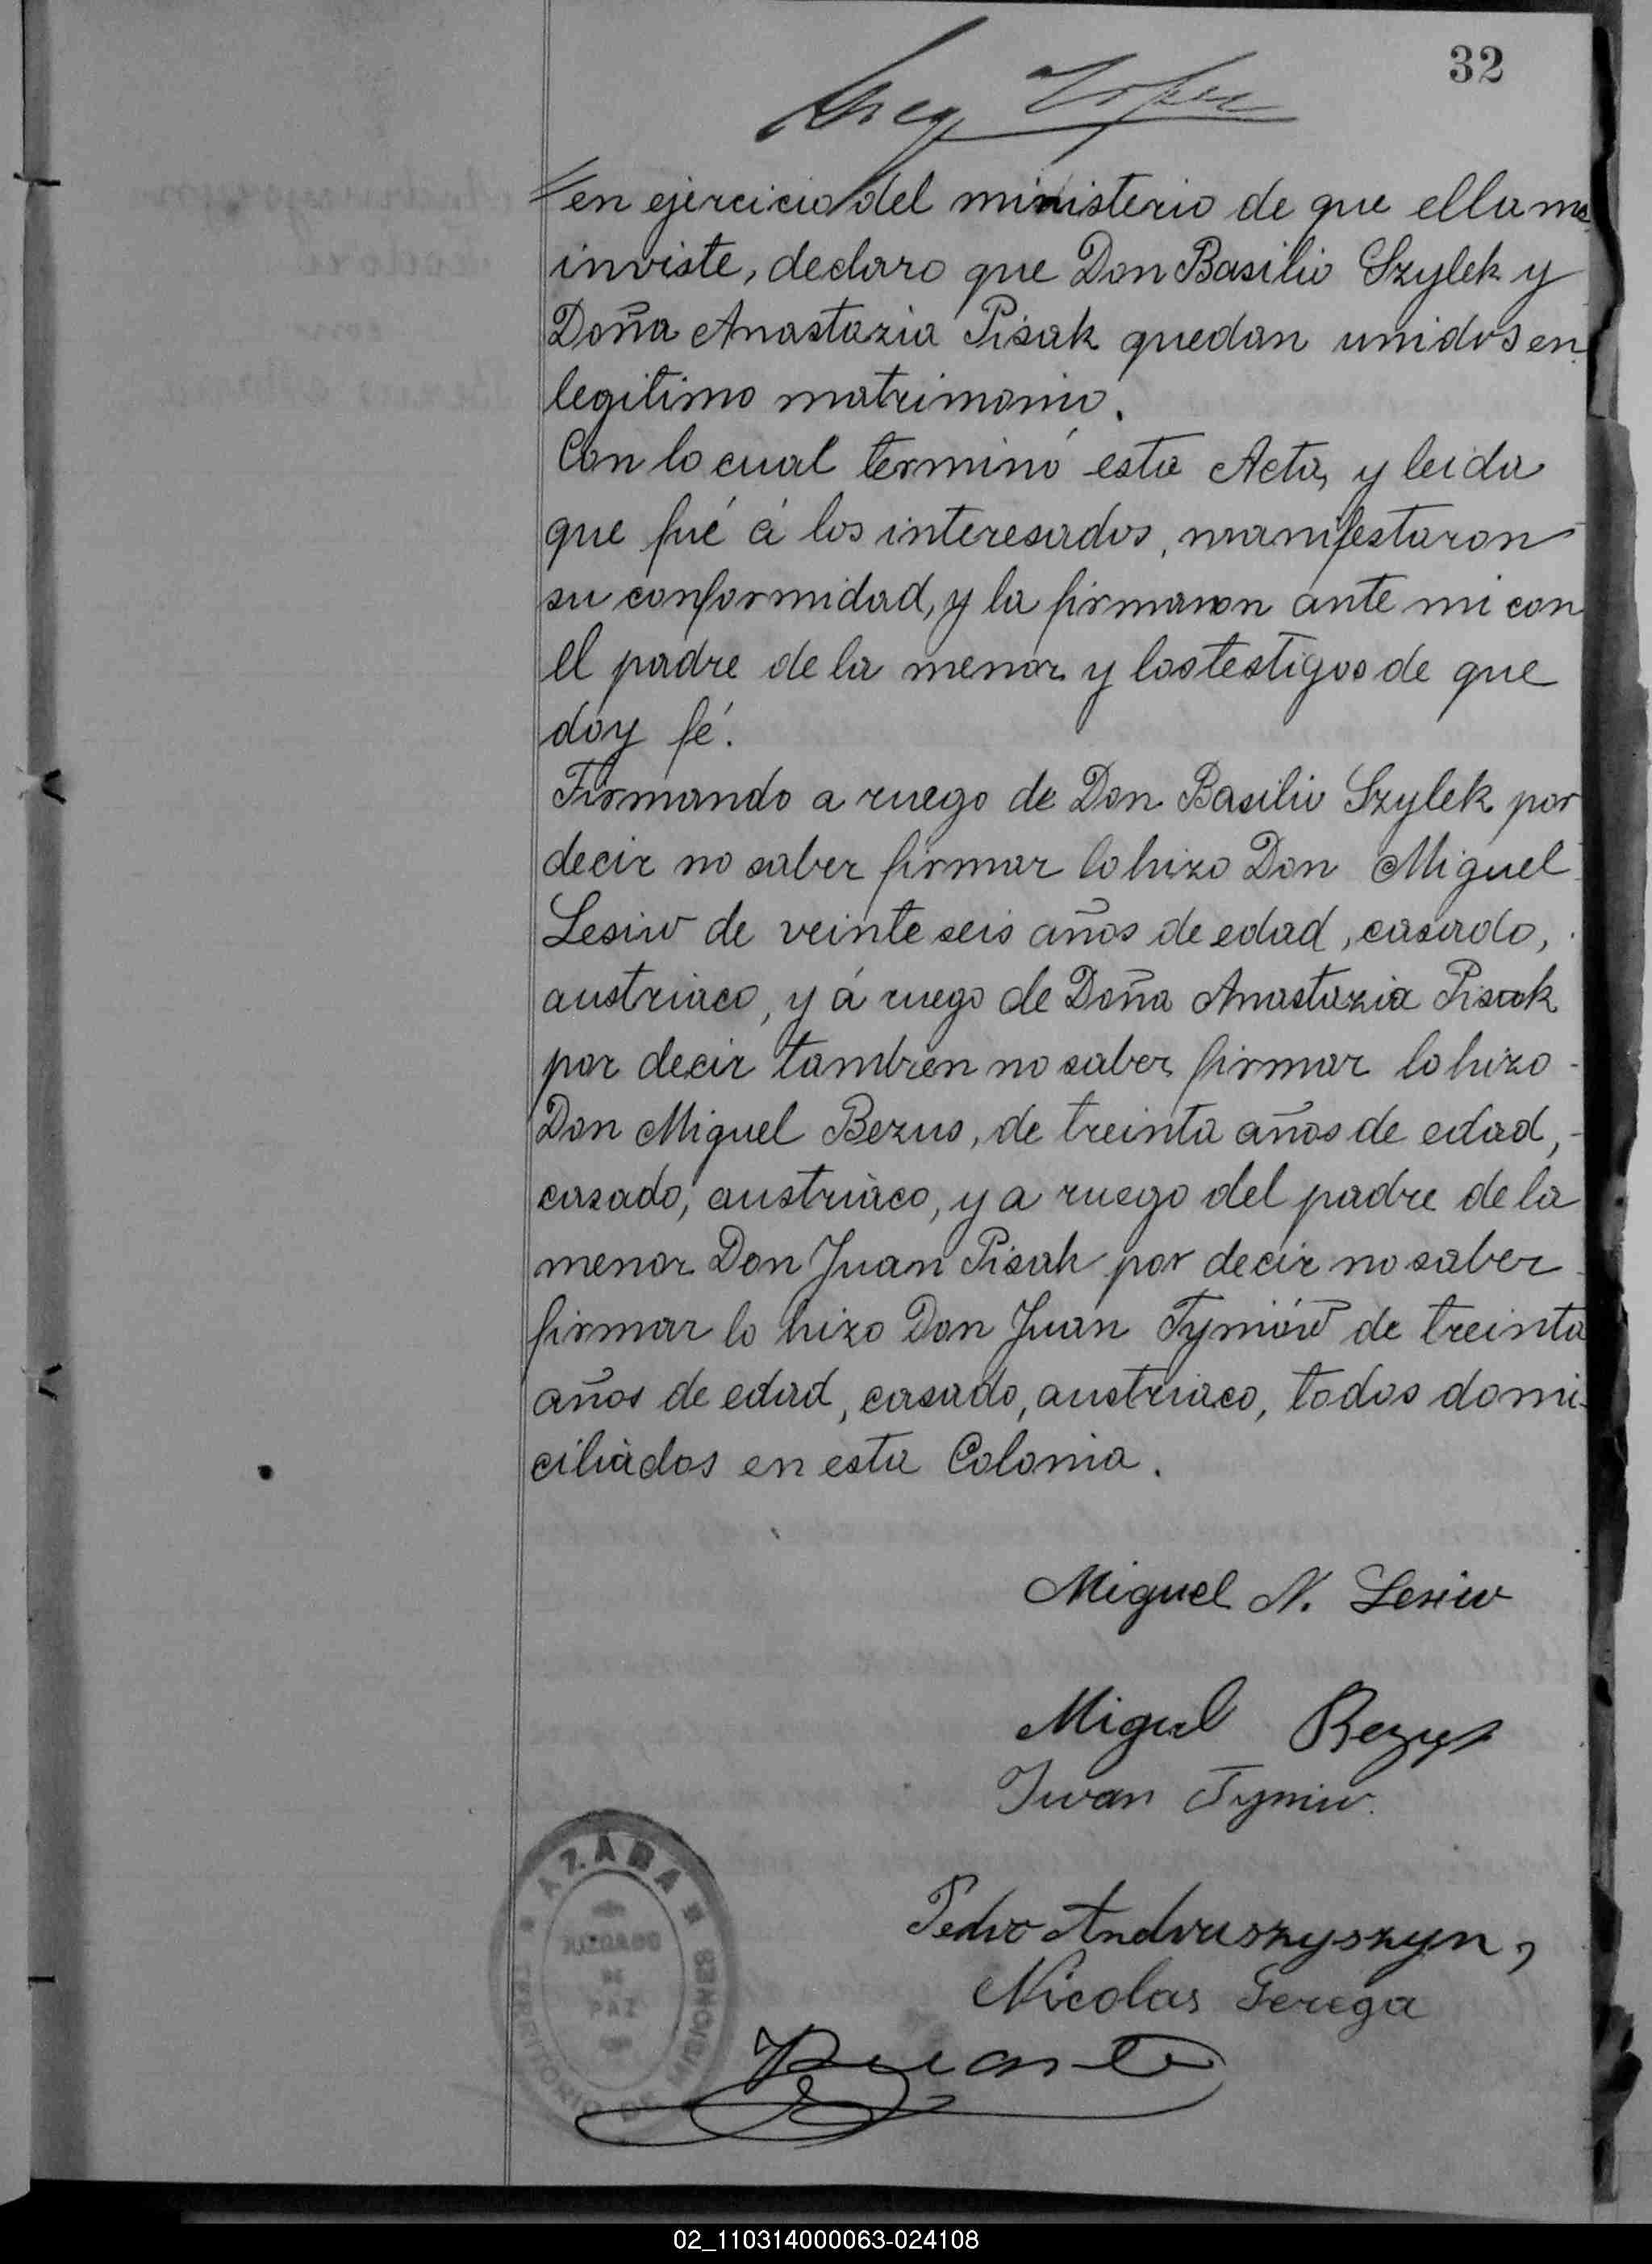 32
en ejercicio del ministerio de que ella me
inviste, declaro que Don Basilio Szylek y
Doña Anastazia Pisak quedan unidos en
legitimo matrimonio.
Con lo cual terminó esta Acta, y leida
que fué á los interesados, manifestaron
su conformidad, y la firmaron ante mi con
el padre de la menor y los testigos de que
doy fé.
Firmando a ruego de Don Basilio Szylek por
decir no saber firmar lo hizo Don Miguel
Lesiw de veinte seis años de edad, casado,
austriaco, y á ruego de Doña Anastazia Pisak
por decir tambien no saber firmar lo hizo
Don Miguel Bezus, de treinta años de edad,
casado, austriaco, y a ruego del padre de la
menor Don Juan Pisak por decir no saber
firmar lo hizo Don Juan Tymów de treinta
años de edad, casado, austriaco, todos domi-
ciliados en esta Colonia.
Miguel N. Lesiw
Miguel Bezus
Iwan Tymiw.
Pedro Andruszyszyn,
Nicolas Gerega
AZARA
JUZGADO
DE
PAZ
TERRITORIO DE MISIONES
02_110314000063-024108